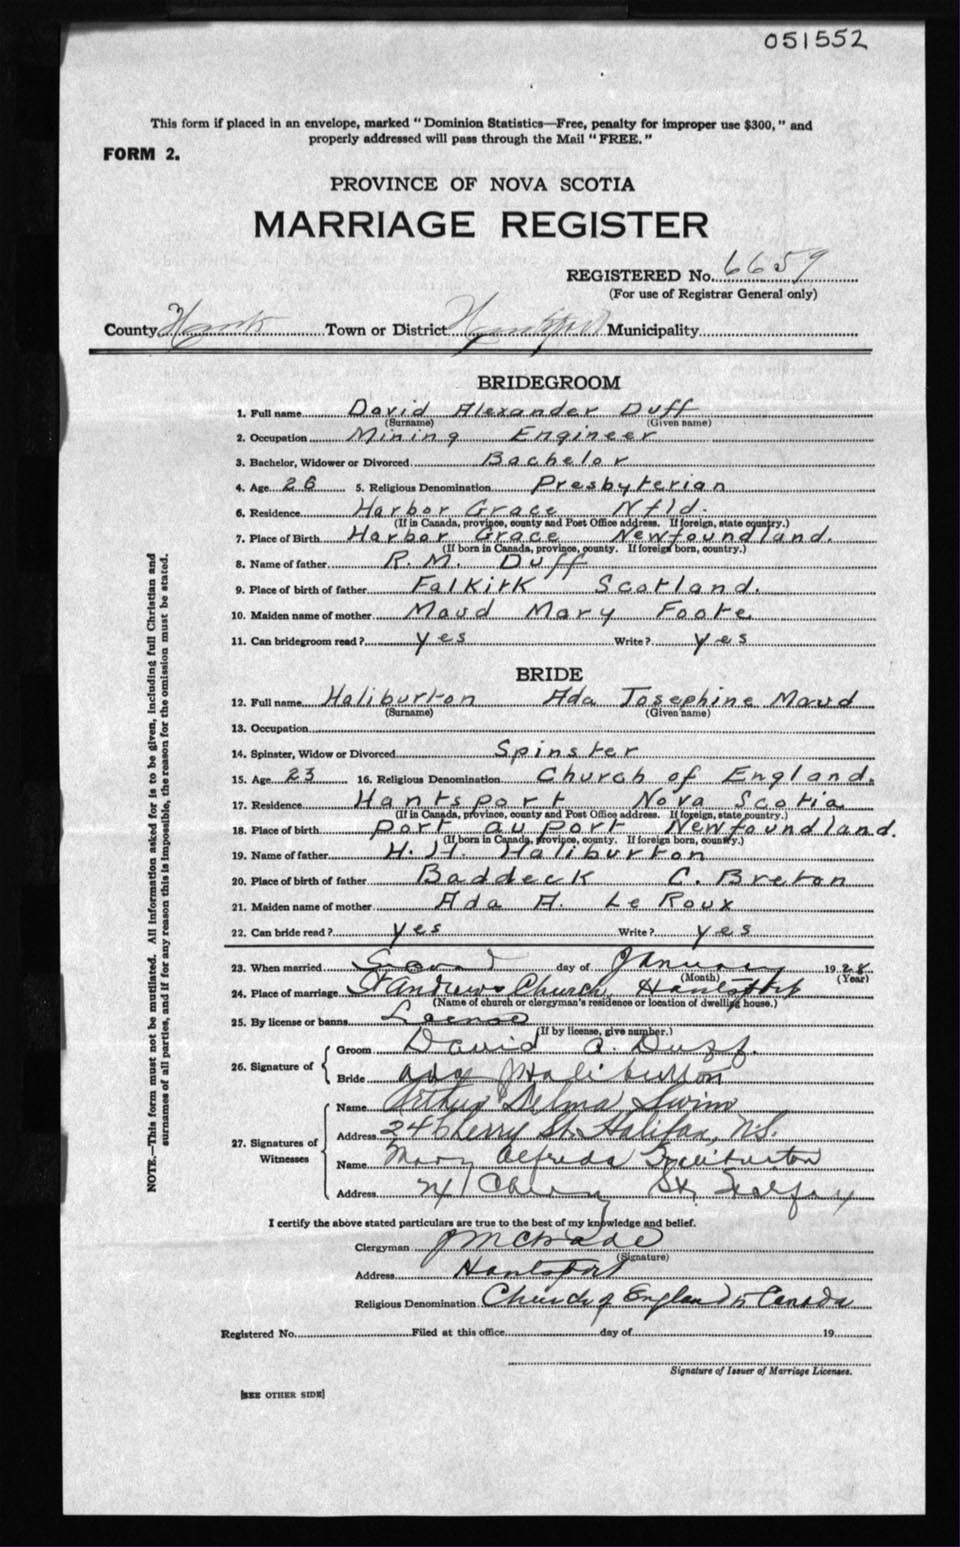 051552
This form if placed in an envelope, marked "Dominion Statistics—Free, penalty for improper use $300," and
properly addressed will pass through the Mail "FREE."
FORM 2.
PROVINCE OF NOVA SCOTIA
MARRIAGE REGISTER
REGISTERED No. 6659
(For use of Registrar General only)
County Hants Town or District Hantsport Municipality
BRIDEGROOM
1. Full name David Alexander Duff
(Surname) (Given name)
2. Occupation Mining Engineer
3. Bachelor, Widower or Divorced Bachelor
4. Age 26 5. Religious Denomination Presbyterian
6. Residence Harbor Grace Nfld.
(If in Canada, province, county and Post Office address. If foreign, state country.)
7. Place of Birth Harbor Grace Newfoundland.
(If born in Canada, province, county. If foreign born, country.)
8. Name of father R. M. Duff
9. Place of birth of father Falkirk Scotland.
10. Maiden name of mother Maud Mary Foote
11. Can bridegroom read? yes Write? yes
BRIDE
12. Full name Haliburton Ada Josephine Maud
(Surname) (Given name)
13. Occupation
14. Spinster, Widow or Divorced Spinster
15. Age 23 16. Religious Denomination Church of England.
17. Residence Hantsport Nova Scotia
(If in Canada, province, county and Post Office address. If foreign, state country.)
18. Place of birth Port au Port Newfoundland.
(If born in Canada, province, county. If foreign born, country.)
19. Name of father H. H. Haliburton
20. Place of birth of father Baddeck C. Breton
21. Maiden name of mother Ada A. Le Roux
22. Can bride read? yes Write? yes
23. When married Second day of January 1928
(Month) (Year)
24. Place of marriage St Andrews Church, Hantsport
(Name of church or clergyman's residence or location of dwelling house.)
25. By license or banns License
(If by license, give number.)
26. Signature of
Groom David A. Duff.
Bride Ada J Haliburton
27. Signatures of Witnesses
Name Arthur Selma Swim
Address 24 Cherry St. Halifax, N.S.
Name Mary Alfreda Haliburton
Address 24 Cherry St. Halifax
I certify the above stated particulars are true to the best of my knowledge and belief.
Clergyman
(Signature)
Address Hantsport
Religious Denomination Church of England in Canada
Registered No. Filed at this office day of 19
Signature of Issuer of Marriage Licenses.
[SEE OTHER SIDE]
NOTE.—This form must not be mutilated. All information asked for is to be given, including full Christian and
surnames of all parties, and if for any reason this is impossible, the reason for the omission must be stated.